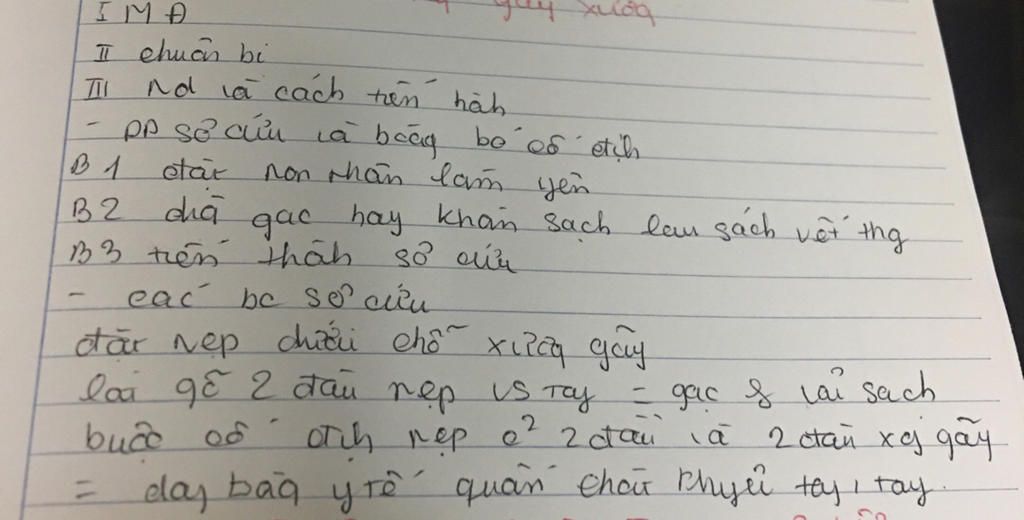 gãy xương
I MĐ
II chuẩn bị
III Nd và cách tiến hàh
- PP sơ cứu và băng bó cố địh
B1 đặt nạn nhân nằm yên
B2 dùg gạc hay khăn sạch lau sạch vết thg
B3 tiến hàh sơ cứu
- các bc sơ cứu
đặt nẹp dưới chỗ xươg gãy
lót gỗ 2 đầu nẹp vs tay = gạc & vải sạch
buộc cố địh nẹp ở 2 đầu và 2 đầu xg gãy
= dây băg y tế quấn chặt khuỷu tay, tay